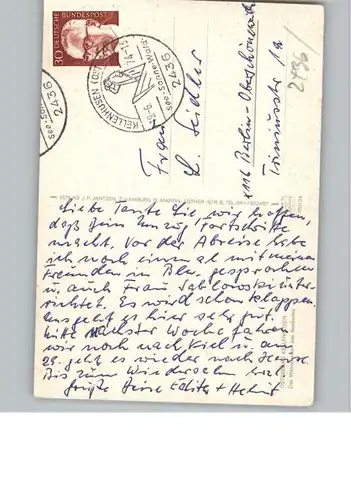 30 DEUTSCHE BUNDESPOST
KELLENHUSEN (OSTSEE)
See-Sonne-Wald
2436
2436
See-Sonne-
Frau
L. Seidler
1116 Berlin-Oberschöneweide
2436/
VERLAG J.P. JANTZEN, 2 HAMBURG
Liebe Tante Lie, wir hoffen,
daß Dein Umzug Fortschritte
macht. Vor der Abreise habe
ich noch einmal mit meinen
Freunden in Bln. gesprochen
u. auch Frau Jablonski unter-
richtet. Es wird schon klappen.
Uns geht es hier sehr gut.
Mitte nächster Woche fahren
wir noch nach Kiel u. am
29. geht es wieder nach Hause.
Bis zum Wiedersehn herzl.
Grüße Deine Edith + Helmut